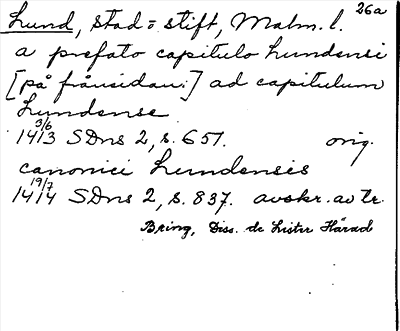 26a
Lund, stad o stift, Malm. l.
a prefato capitulo Lundensi
[på frånsidan:] ad capitulum
Lundense
3/6 1413 SDns 2, s. 651. orig.
canonici Lundensis
19/7 1414 SDns 2, s. 837. avskr. av tr.
Bring, Diss. de Lister Härad